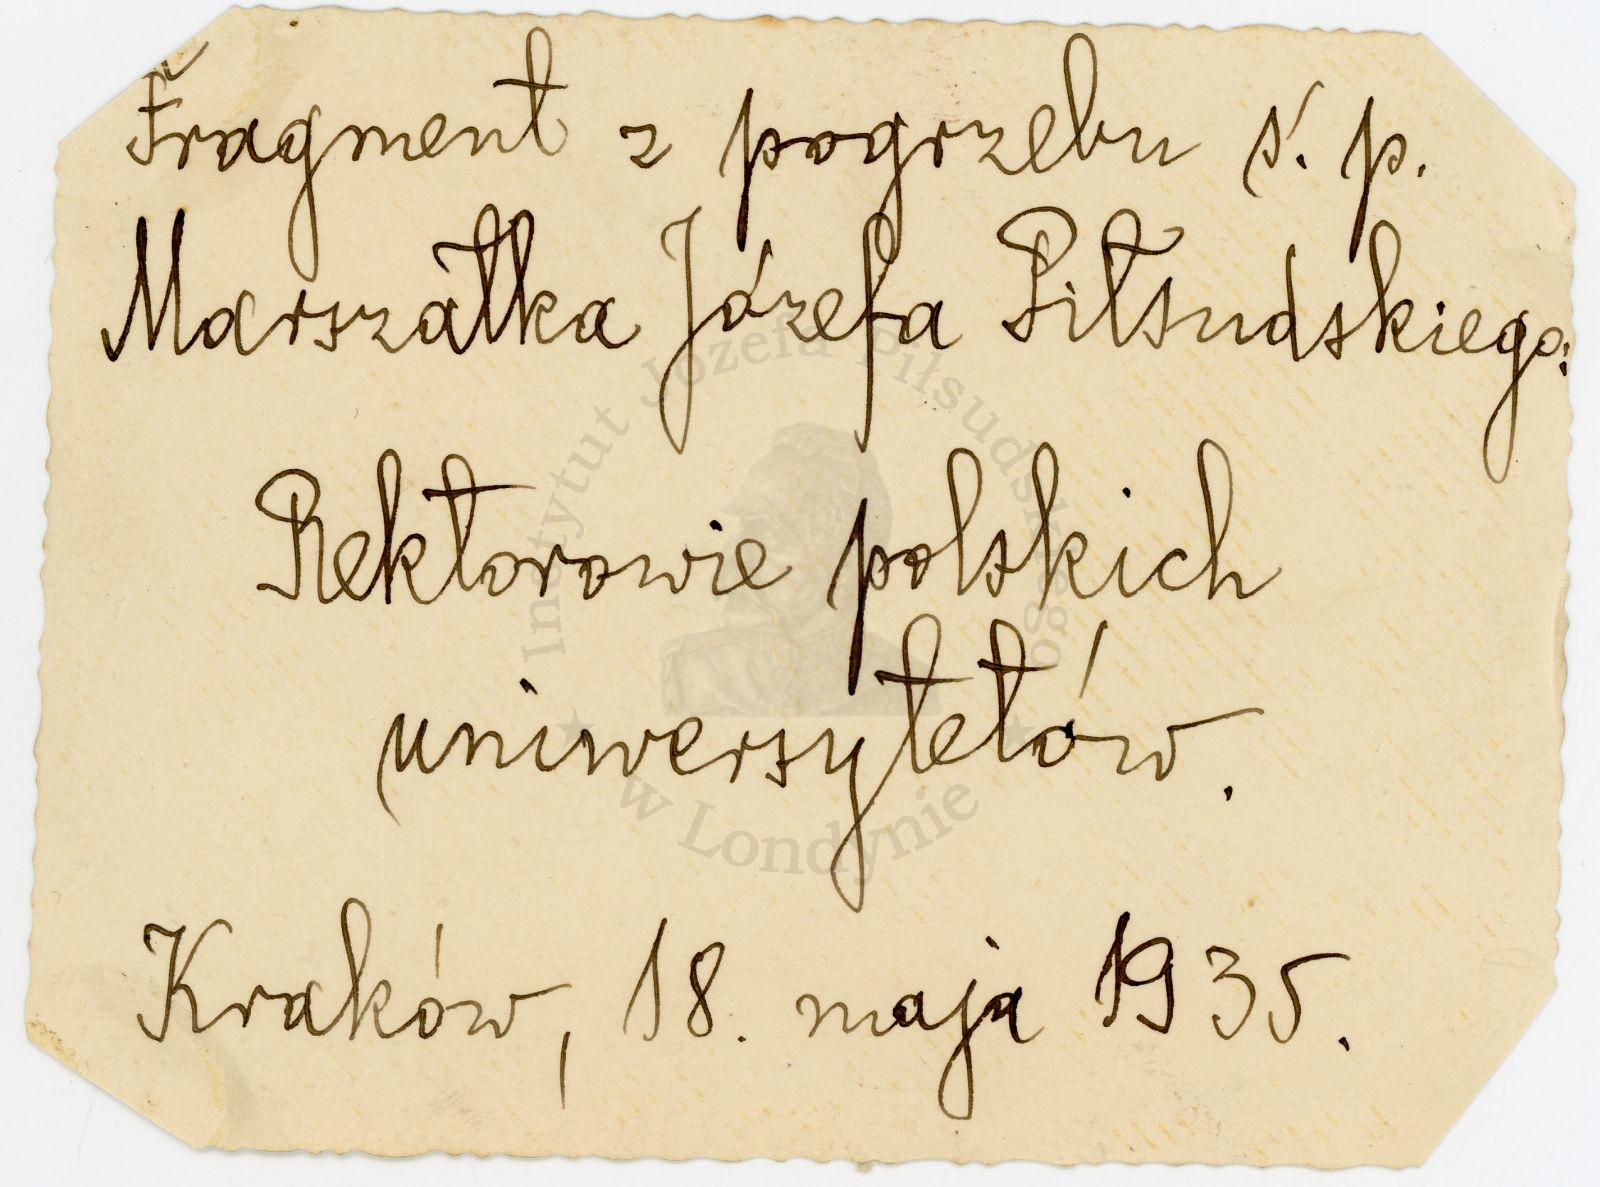 Fragment z pogrzebu ś. p.
Marszałka Józefa Piłsudskiego:
Rektorowie polskich
uniwersytetów.
Kraków, 18. maja 1935.
Instytut Józefa Piłsudskiego
w Londynie